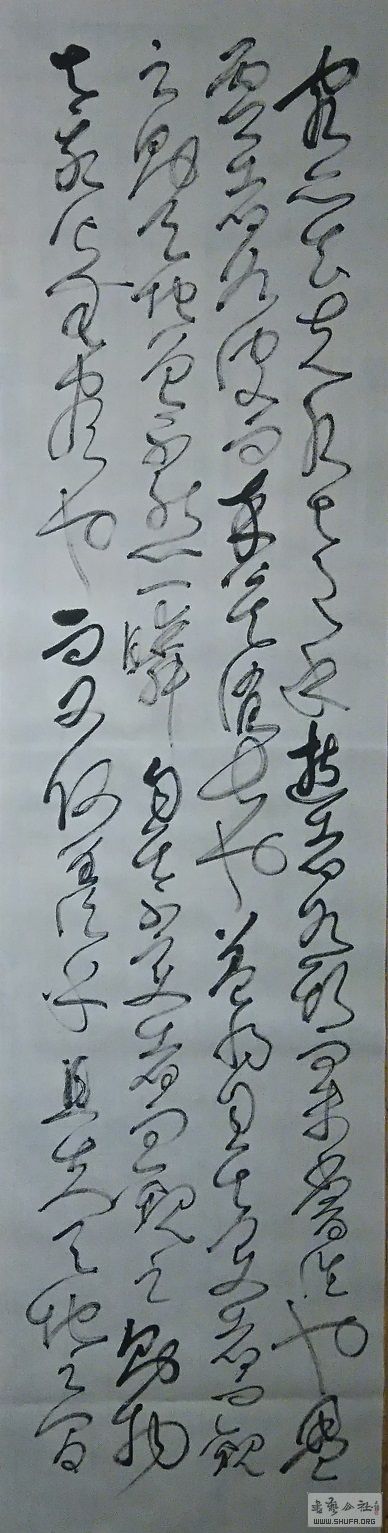 客亦知夫水與月乎逝者如斯而未嘗往也盈
虛者如彼而卒莫消長也蓋將自其變者而觀
之則天地曾不能以一瞬自其不變者而觀之則物
與我皆無盡也而又何羨乎且夫天地之間
書藝公社
WWW.SHUFA.ORG